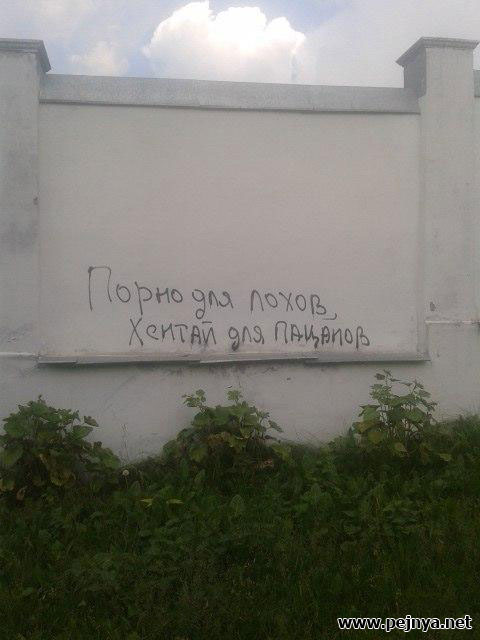 Порно для лохов,
Хентай для пацанов
www.pejnya.net